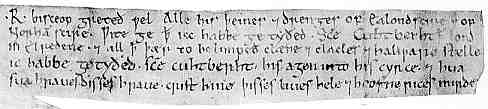 R. bisceop greteð wel Alle his þeines ⁊ drenges of Ealondscire ⁊ of
Norhamscire. Wite ge þ ic habbe getyðed Sce Cuthberht þ lond
in Elredene ⁊ all þ þar to belimpeð clæne ⁊ clacles ⁊ haliwarestelle
ic habbe getyðed Sce Cuthberht his agen into his cyrce. ⁊ hua
sua braues þisses braue. crist hine þisses liues hele ⁊ heofne rices murde